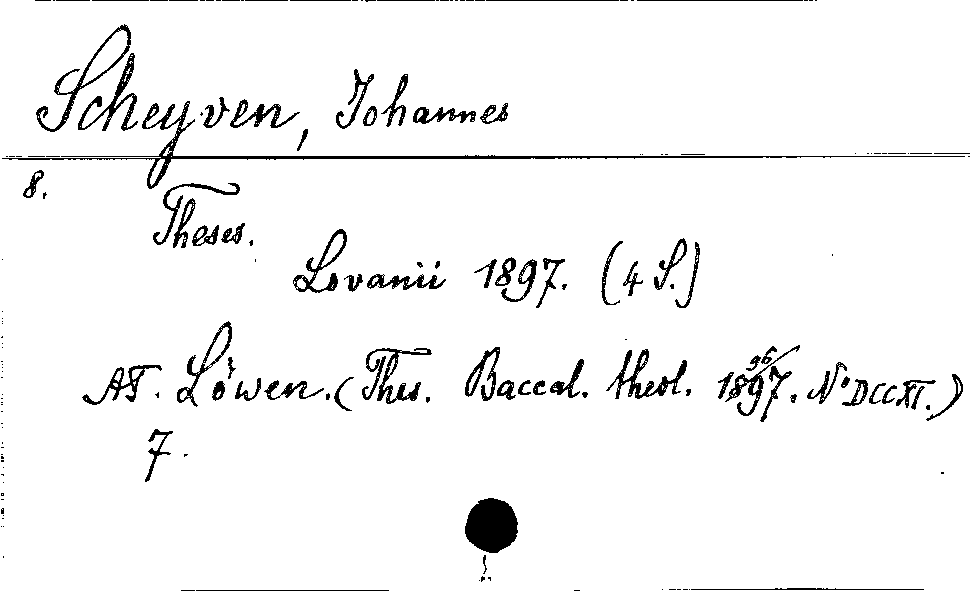 Scheyven, Johannes
8.
Theses.
Lovanii 1897. (4 S.)
AT. Löwen. (Thes. Baccal. theol. 1896/97. No DCCXI.)
7.